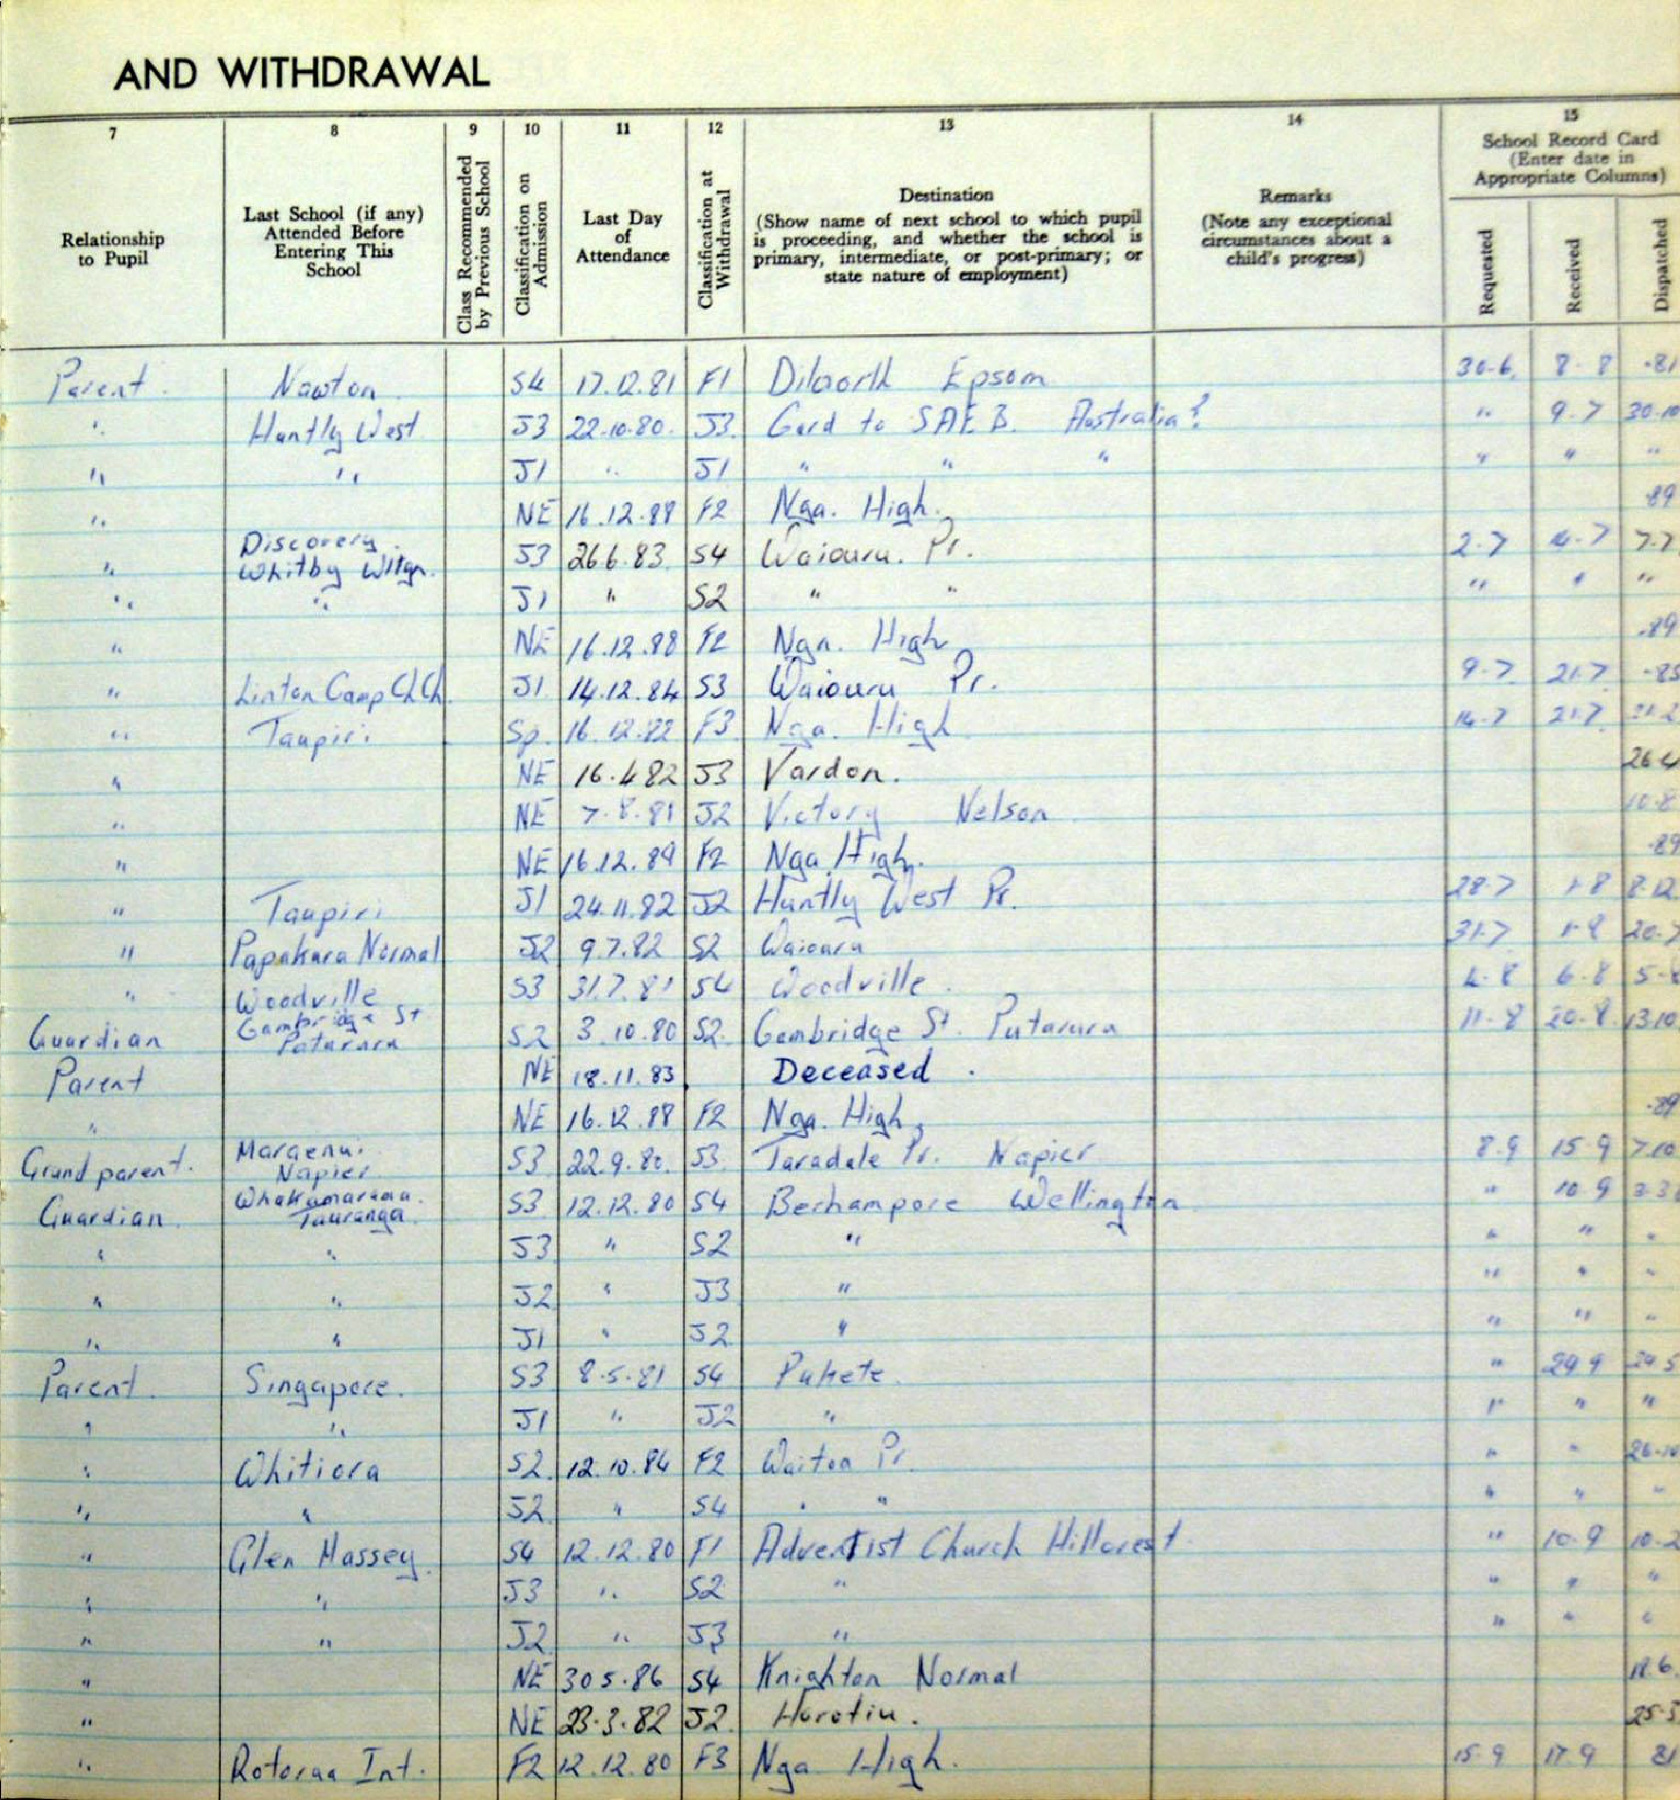 AND WITHDRAWAL
7 8 9 10 11 12 13 14 15
Relationship to Pupil
Last School (if any) Attended Before Entering This School
Class Recommended by Previous School
Classification on Admission
Last Day of Attendance
Classification at Withdrawal
Destination
(Show name of next school to which pupil is proceeding, and whether the school is primary, intermediate, or post-primary; or state nature of employment)
Remarks
(Note any exceptional circumstances about a child's progress)
School Record Card
(Enter date in Appropriate Columns)
Requested Received Dispatched
Parent Nawton S4 17.12.81 F1 Dilworth Epsom 30-6 8-8 -81
" Huntly West J3 22.10.80. J3. Gard to SAEB. Australia? " 9.7 30.10
" " J1 " J1 " " " " " "
" NE 16.12.88 F2 Nga. High. 89
" Discovery Whitby Wltgn. J3 26.6.83 S4 Waiouru. Pr. 2.7 4.7 7.7
" " J1 " S2 " " " " "
" NE 16.12.88 F2 Nga. High -89
" Linton Camp ChCh. J1 14.12.84 S3 Waiouru Pr. 9.7 21.7 -85
" Taupiri Sp. 16.12.82 F3 Nga. High 14.7 21.7 21.2
" NE 16.4.82 J3 Vardon. 26.4
" NE 7.8.81 J2 Victory Nelson 10.8
" NE 16.12.89 F2 Nga High. -89
" Taupiri J1 24.11.82 J2 Huntly West Pr. 28.7 1-8 8.12
" Papakura Normal J2 9.7.82 S2 Waiouru 31.7 1-8 20.7
" Woodville S3 31.7.81 S4 Woodville. 4.8 6.8
Guardian Cambridge St Putaruru S2 3.10.80 S2. Cambridge St. Putaruru 11-8 20-8 13.10
Parent NE 18.11.83 Deceased.
" NE 16.12.88 F2 Nga. High. -89
Grandparent. Maraenui Napier S3 22.9.80. S3. Taradale Pr. Napier 8.9 15.9 7.10
Guardian. Whakamarama. Tauranga S3 12.12.80 S4 Berhampore Wellington " 10.9 3.3
" " J3 " S2 " " " "
" " J2 " J3 " " " "
" " J1 " J2 " " " "
Parent. Singapore. S3 8.5.81 S4 Pukete. " 29.9 29.5
" " J1 " J2 " " " "
" Whitiora S2. 12.10.84 F2 Waiton Pr. " " 26.10
" " J2. " S4 " " " " "
" Glen Massey. S4 12.12.80 F1 Adventist Church Hillcrest. " 10.9 10.2
" " J3 " S2 " " " "
" " J2 " J3 " " " "
" NE 30.5.86 S4 Knighton Normal 18.6.
" NE 23.3.82 J2. Horotiu. 25.5
" Rotorua Int. F2 12.12.80 F3 Nga High. 15.9 17.9 81